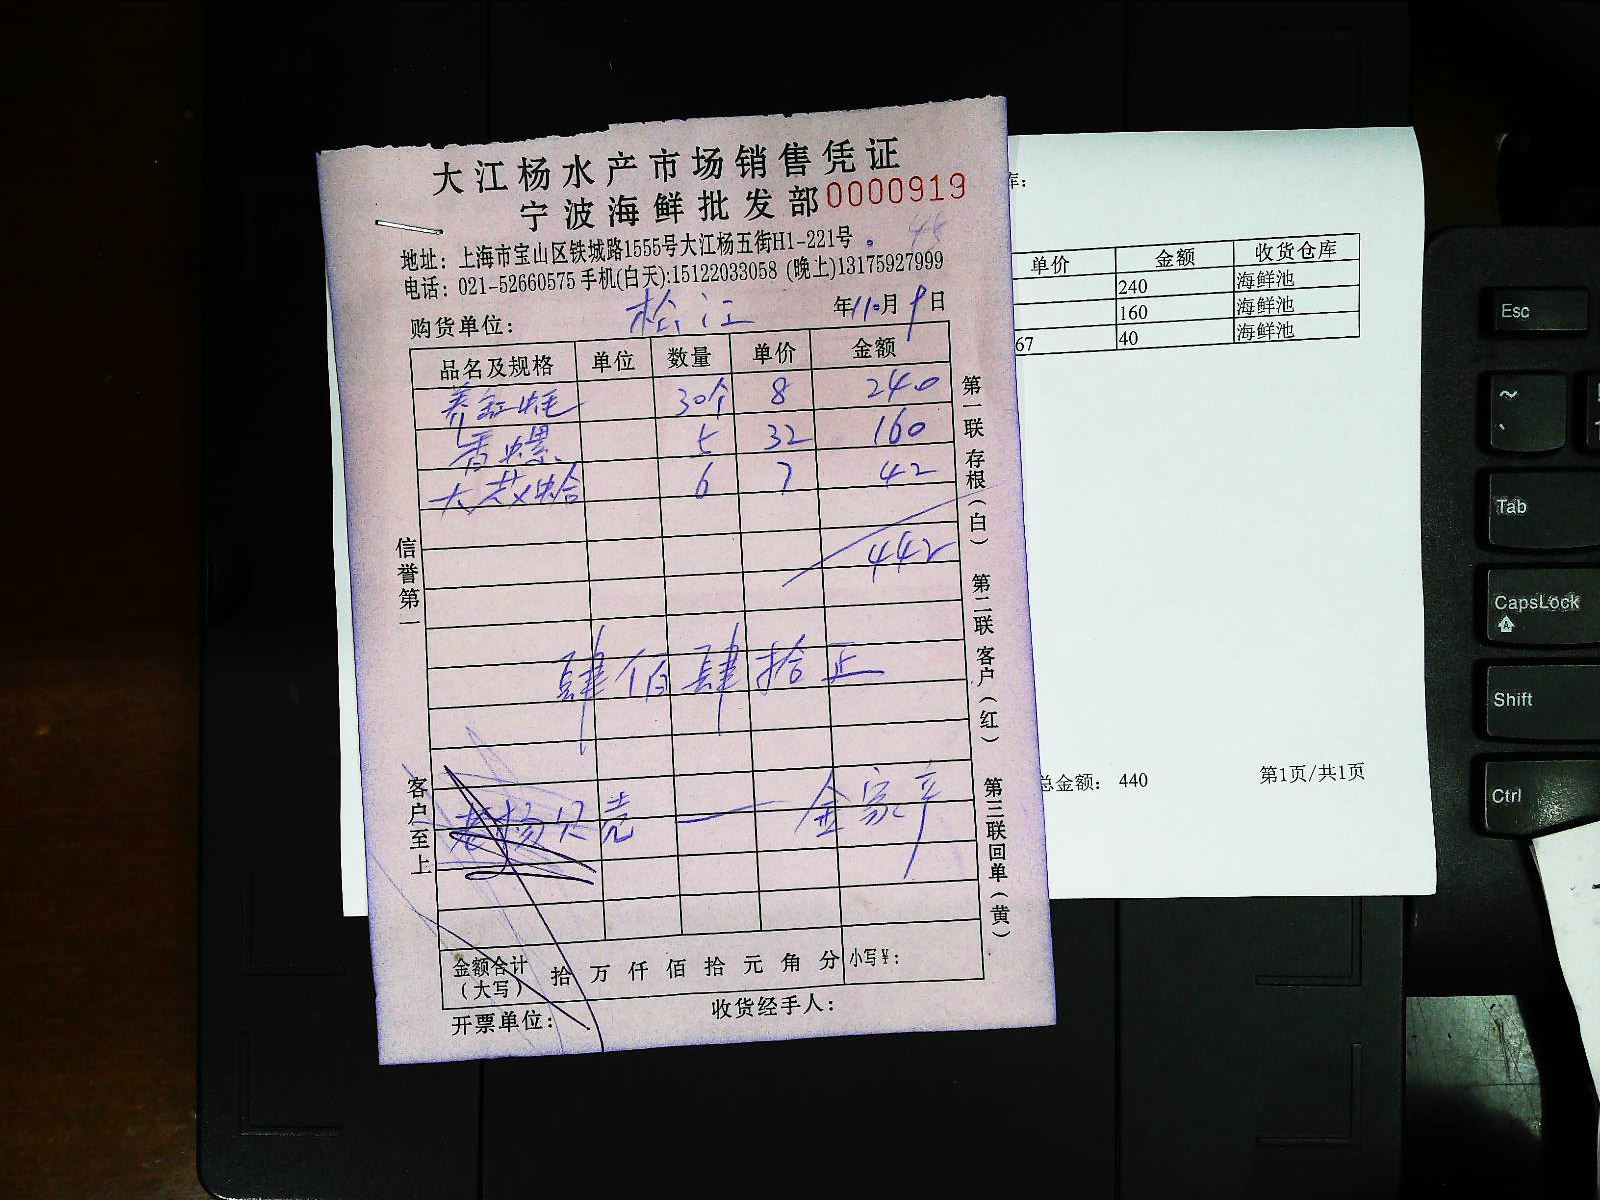 大江杨水产市场销售凭证
宁波海鲜批发部 0000919
45
地址：上海市宝山区铁城路1555号大江杨五街H1-221号。
电话：021-52660575 手机(白天):15122033058 (晚上)13175927999
购货单位： 松江 年11.月9日
品名及规格 单位 数量 单价 金额
养缸蚝 30个 8 240
香螺 5 32 160
大花蛤 6 7 42
442
肆佰肆拾正
老杨贝壳 — 金家产
金额合计（大写） 拾 万 仟 佰 拾 元 角 分 小写¥：
开票单位： 收货经手人：
信誉第一
客户至上
第一联 存根（白） 第二联 客户（红） 第三联 回单（黄）
库：
单价 金额 收货仓库
240 海鲜池
160 海鲜池
67 40 海鲜池
总金额： 440 第1页/共1页
Esc
~
Tab
CapsLock
Shift
Ctrl